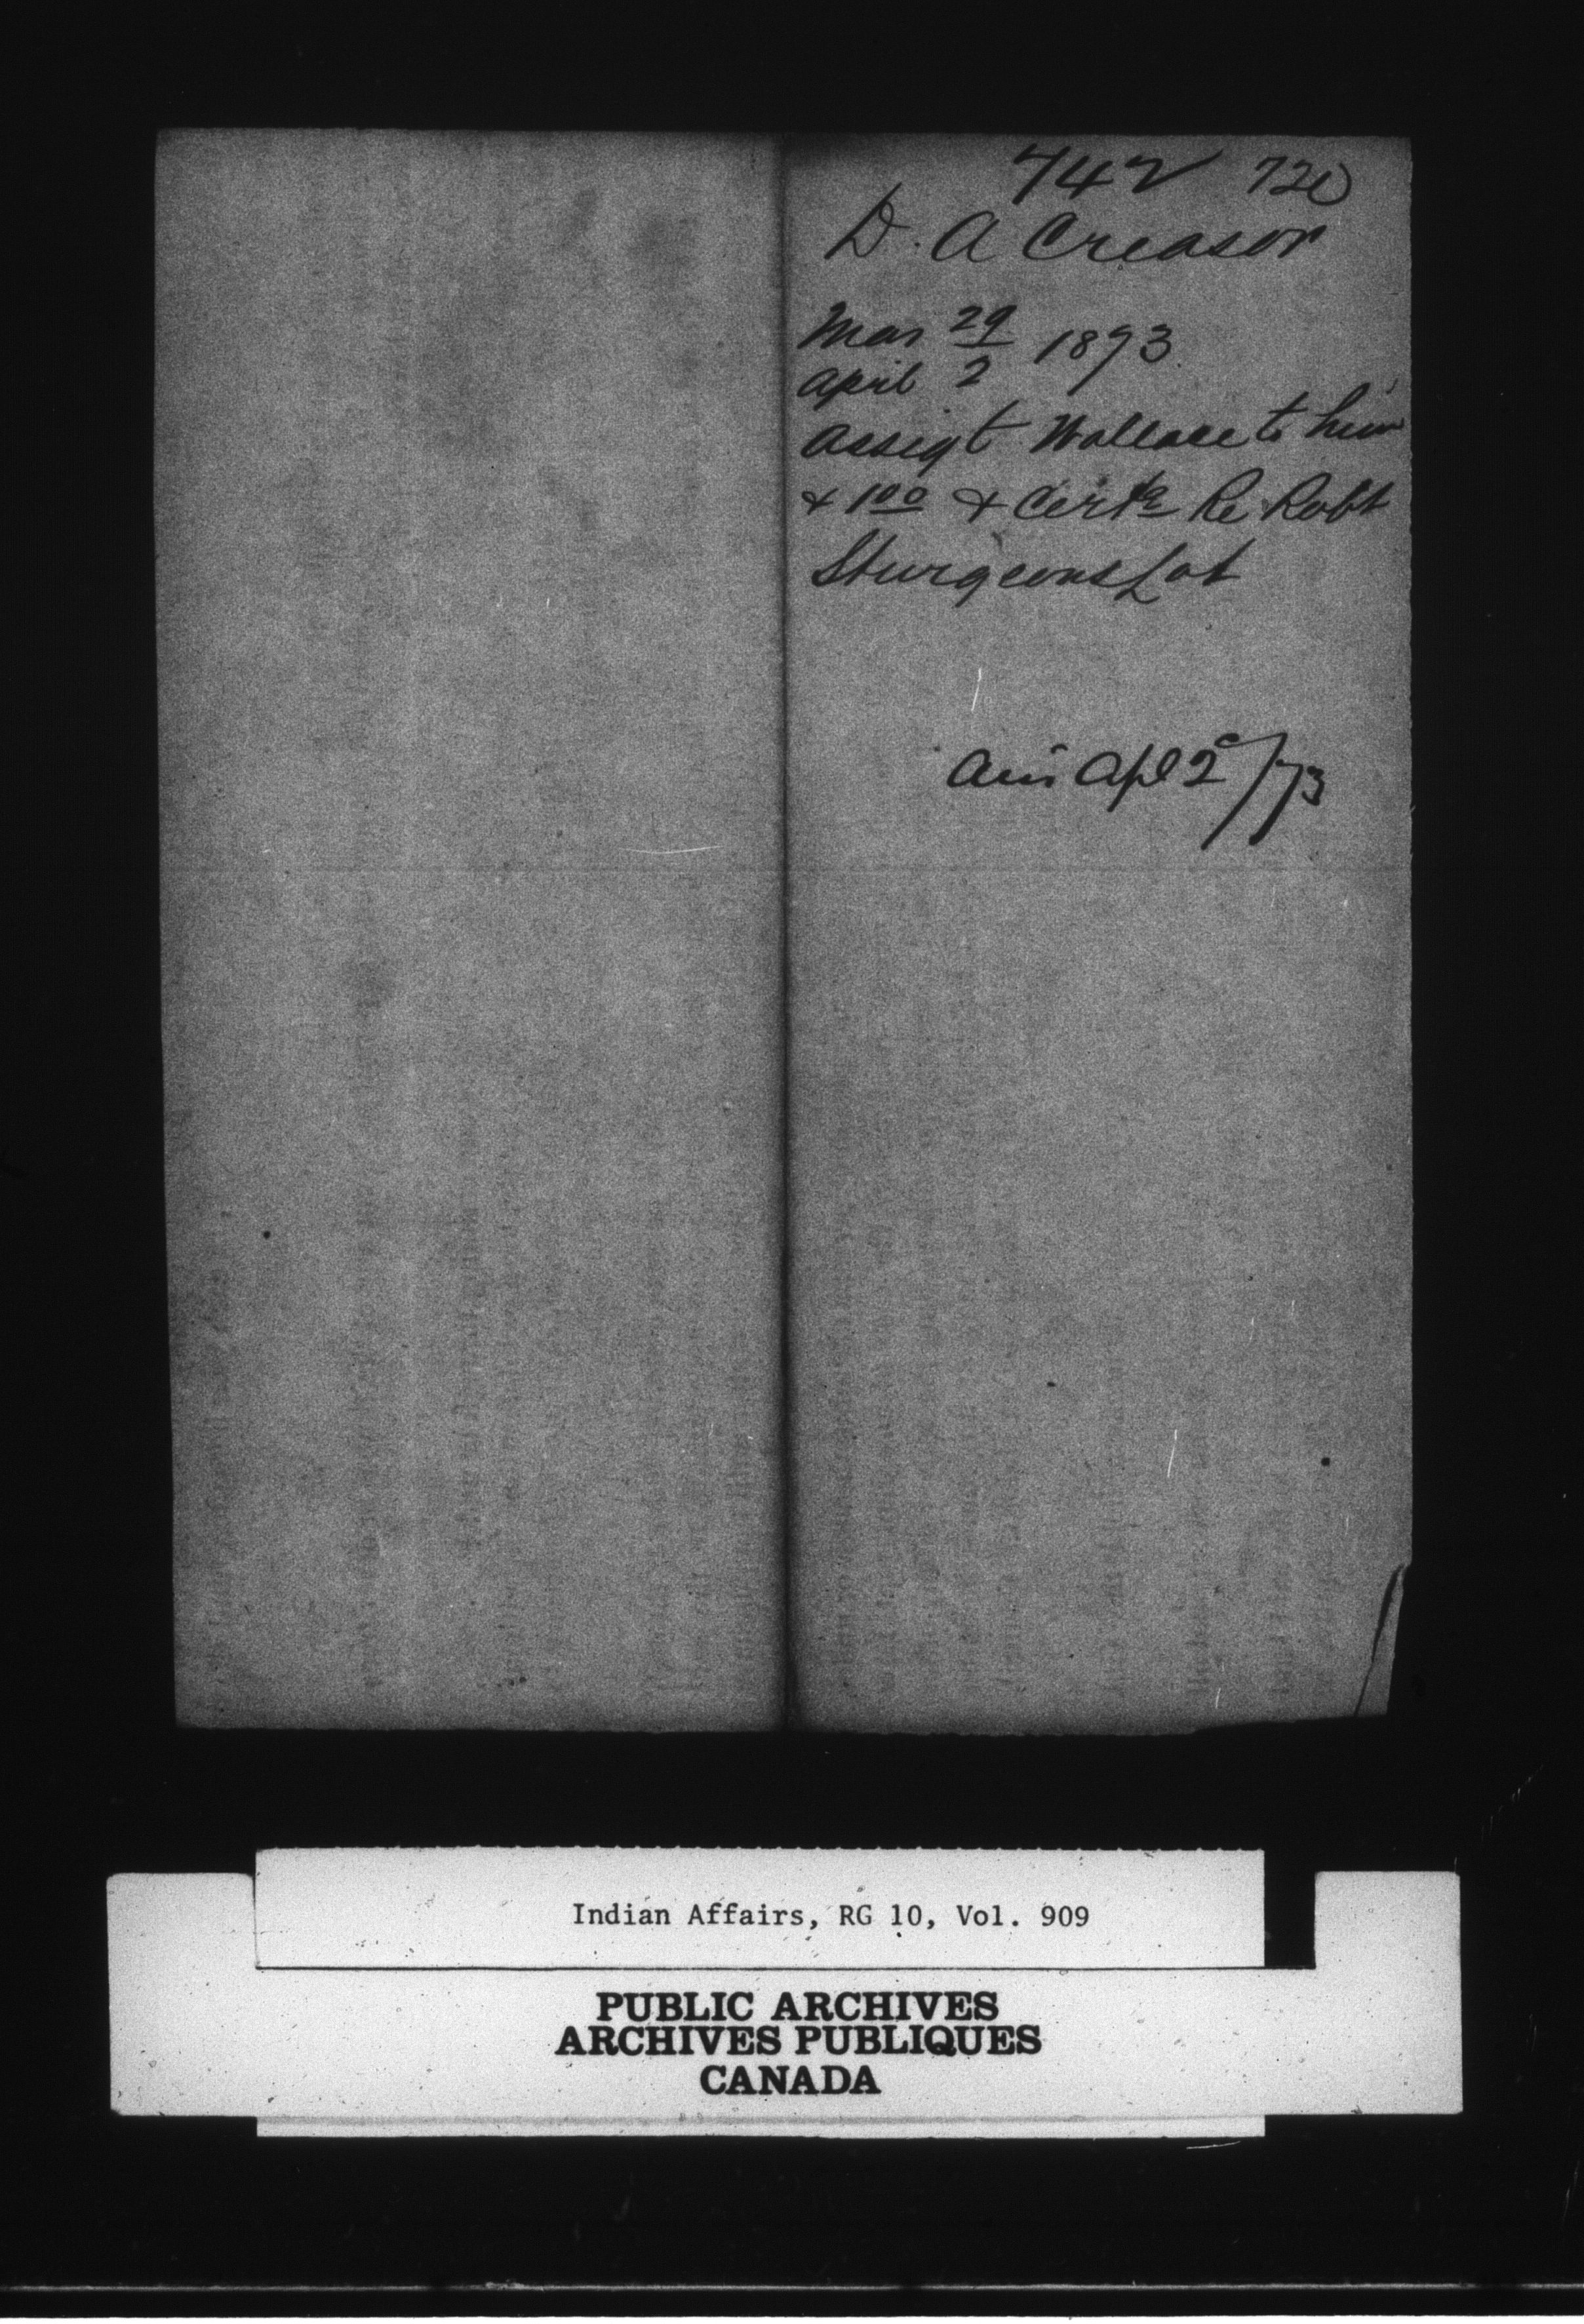 742 720
D. A Creasor
Mar 29 1873
April 2
Assigt Wallace to him
+ 1⁰⁰ + Certe Re Robt
Sturgeons Lot
Ans Apl 2/73
Indian Affairs, RG 10, Vol. 909
PUBLIC ARCHIVES
ARCHIVES PUBLIQUES
CANADA